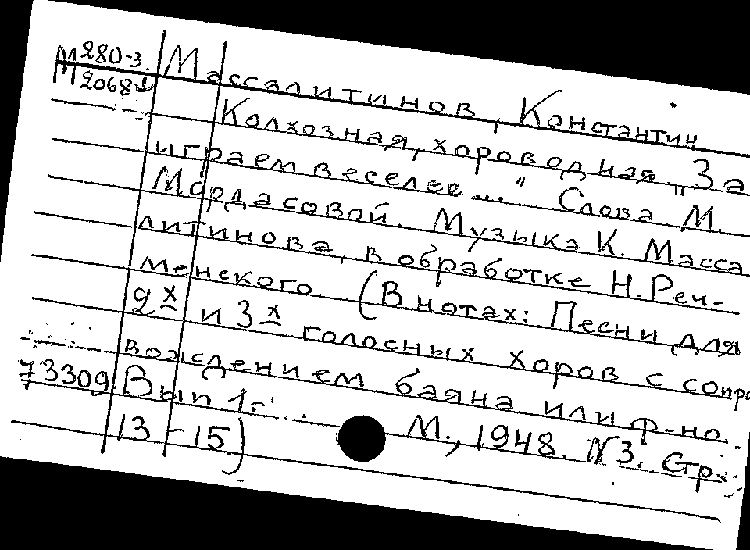 М280-3. Массалитинов, Константин
М2068
Колхозная, хороводная „За
играем веселее..." Слова М.
Мордасовой. Музыка К. Масса
литинова, в обработке Н. Реч-
менского (В нотах: Песни для
2х и 3х голосных хоров с сопро
вождением баяна или ф-но.
73309 Вып 1. М., 1948. N3. Стр.
13-15)